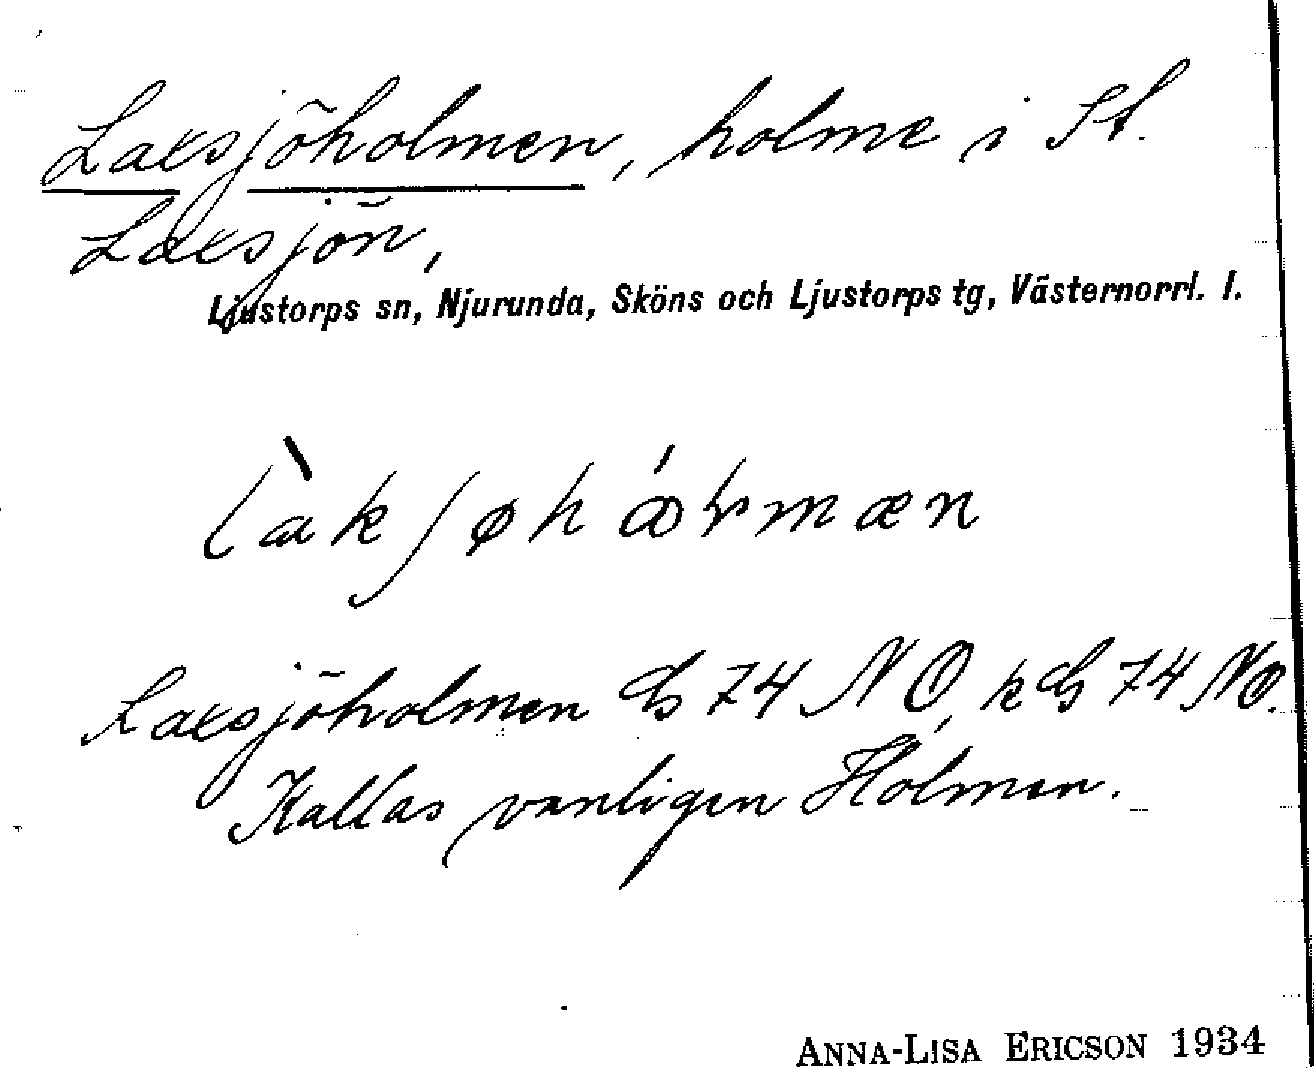 Laxsjöholmen, holme i St.
Laxsjön,
Ljustorps sn, Njurunda, Sköns och Ljustorps tg, Västernorrl. l.
Laxsjöholmen 74 NO, k 74 NO.
Kallas vanligen Hólmen.
ANNA-LISA ERICSON 1934